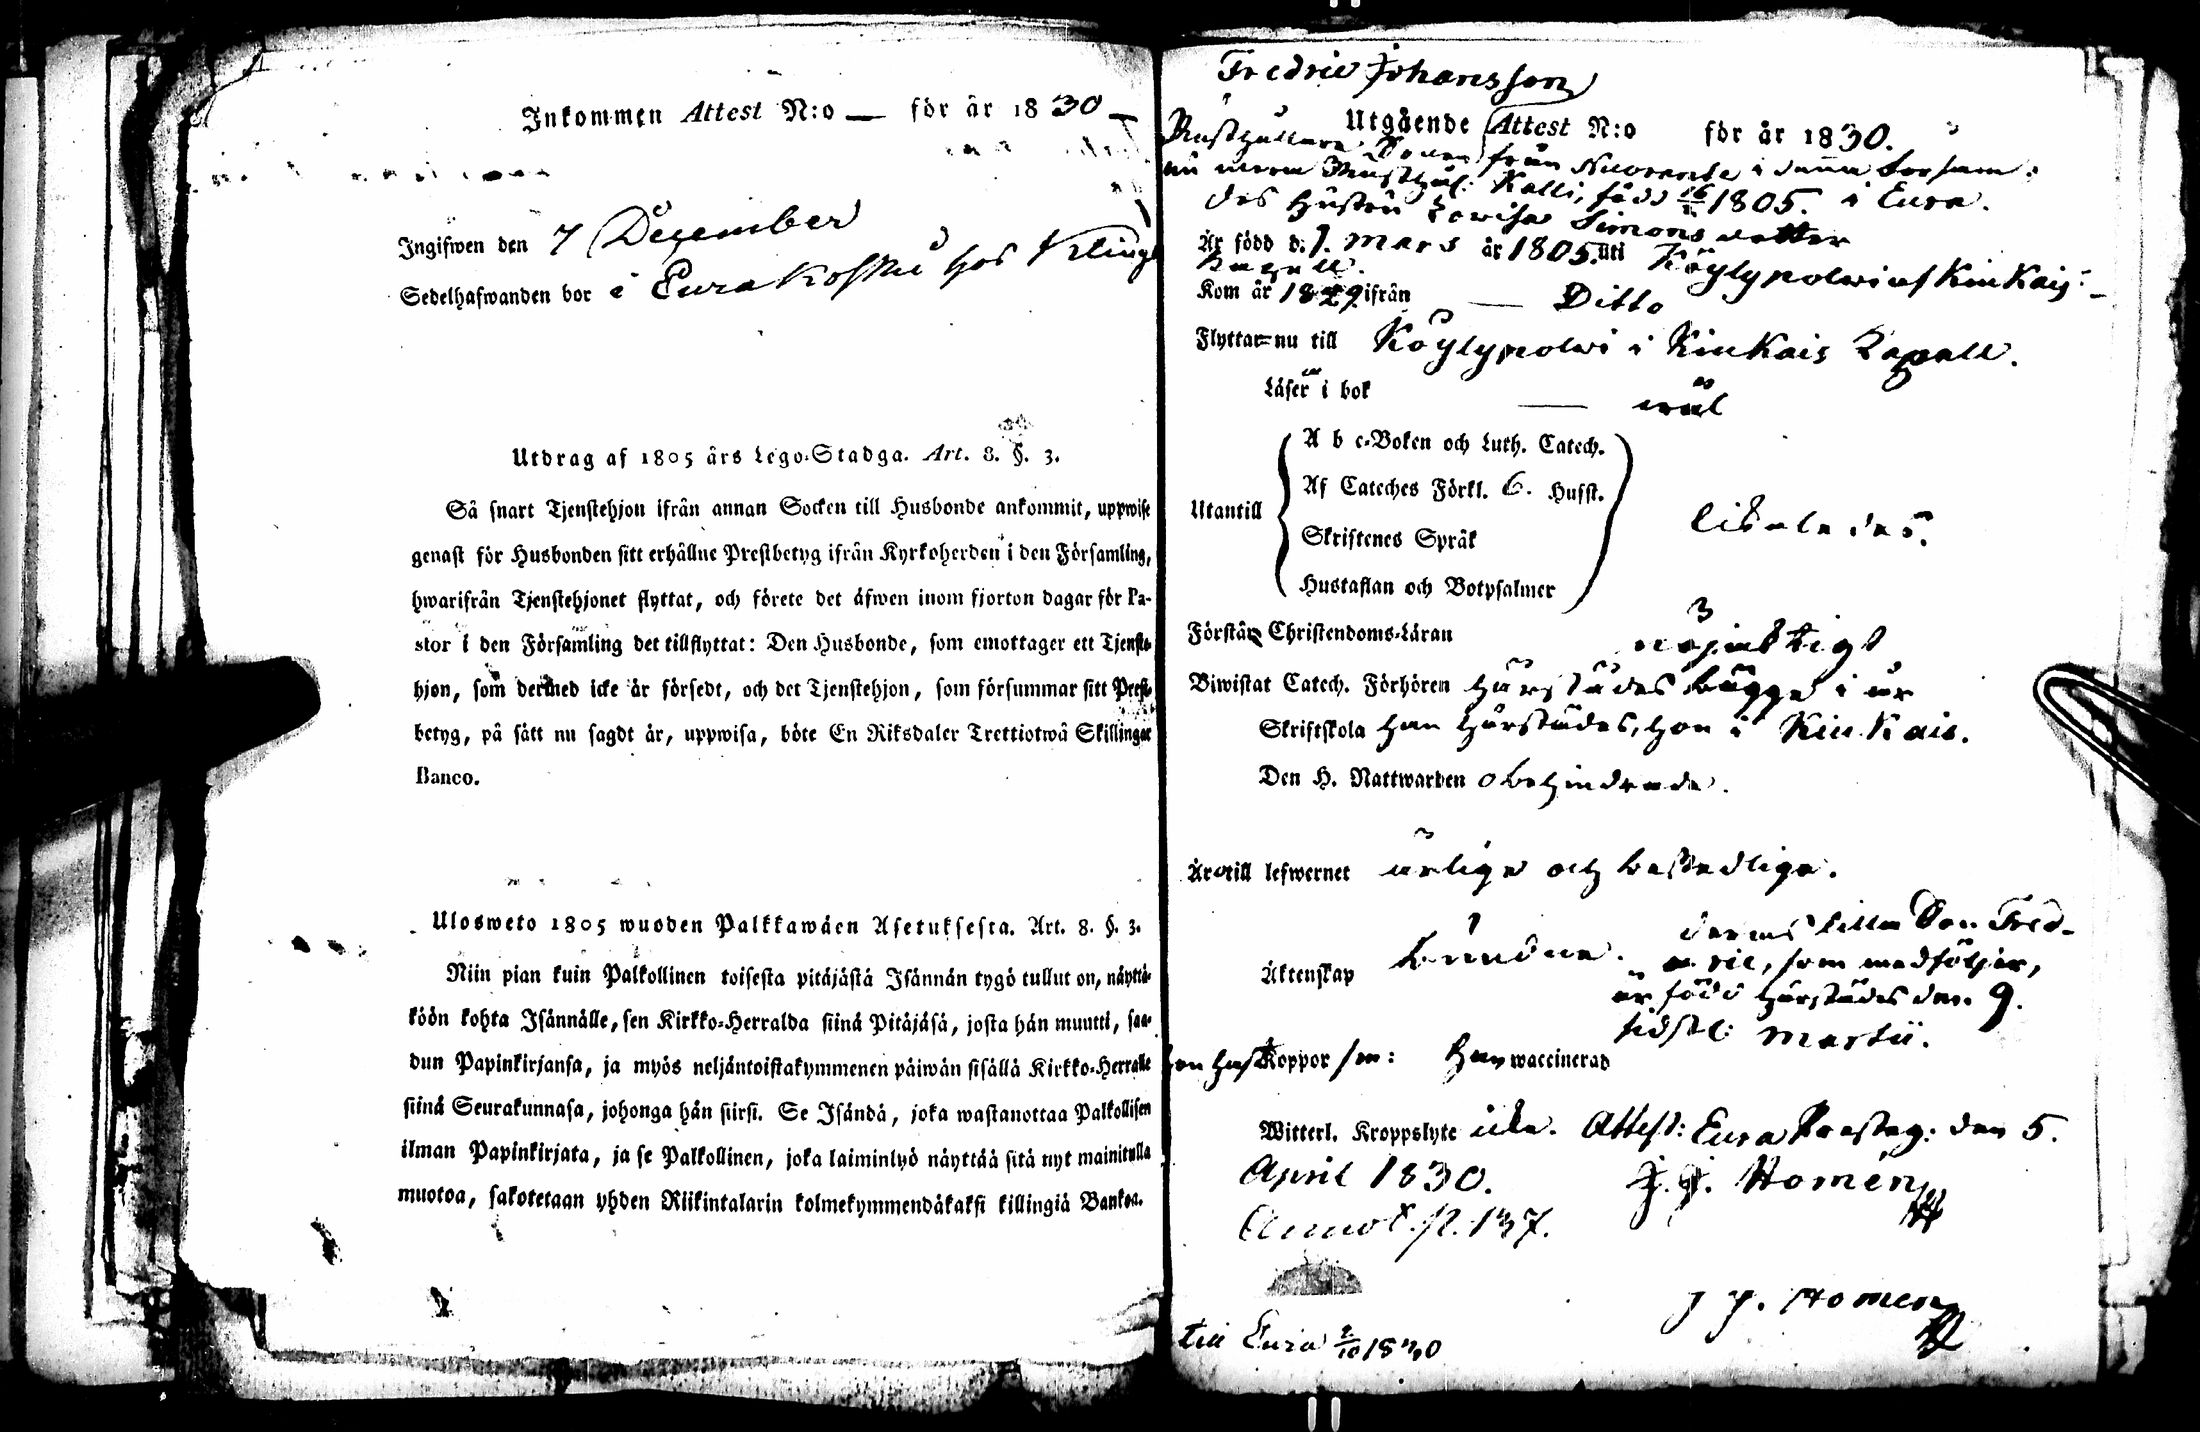 Inkommen Attest N:o — för år 1830
Ingifwen den 7 December
Sedelhafwanden bor i Eura Koskis hos Kling
Utdrag af 1805 års Lego-Stadga. Art. 8. §. 3.
Så snart Tjenstehjon ifrån annan Socken till Husbonde ankommit, uppwise
genast för Husbonden sitt erhållne Prestbetyg ifrån Kyrkoherden i den Församling,
hwarifrån Tjenstehjonet flyttat, och förete det äfwen inom fjorton dagar för Pa-
stor i den Församling det tillflyttat: Den Husbonde, som emottager ett Tjenste-
hjon, som dermed icke är försedt, och det Tjenstehjon, som försummar sitt Prest-
betyg, på sätt nu sagdt är, uppwisa, böte En Riksdaler Trettiotwå Skillingar
Banco.
Ulosweto 1805 wuoden Palkkawäen Asetuksesta. Art. 8. §. 3.
Niin pian kuin Palkollinen toisesta pitäjästä Isännän tygö tullut on, näyttä-
köön kohta Isännälle, sen Kirkko-Herralda siinä Pitäjäsä, josta hän muutti, saa-
dun Papinkirjansa, ja myös neljäntoistakymmenen päiwän sisällä Kirkko-Herralle
siinä Seurakunnasa, johonga hän siirsi. Se Isändä, joka wastanottaa Palkollisen
ilman Papinkirjata, ja se Palkollinen, joka laiminlyö näyttää sitä nyt mainitulla
muotoa, sakotetaan yhden Riikintalarin kolmekymmendäkaksi killingiä Bankoa.
Fredric Johansson
Utgående Attest N:o för år 1830.
Rusthållare Sonen från i denna Församl:
nu mera Rusthål: Kalli, född 16/ 1805. i Eura.
des Hustru Lovisa Simonsdotter
Är född d: 1. Mars år 1805. uti Köylypolwi af Kiukais
Kapell.
Kom år 1829 ifrån — Ditto
Flyttar nu till Köylypolwi i Kiukais Kapell.
Läser i bok — wäl
A b c-Boken och Luth. Catech.
Af Cateches Förkl. 6. Husst.
Utantill
Skriftenes Språk
likaledes.
Hustaflan och Botpsalmer
Förstår Christendoms-Läran nöjaktigt
Biwistat Catech. Förhören härstädes bägge i år
Skriftskola han härstädes, hon i Kiukais.
Den H. Nattwarden obehindrade.
Äro till lefwernet ärlige och beskedlige.
Äktenskap bundne. deras lilla Son Fred-
ric, som medföljer,
är född härstädes den 9.
sidstl: Martii.
hon haft Koppor han waccinerad
Witterl. Kroppslyte icke. Attest: Eura Presteg: den 5.
April 1830. J. J. Homén
Annot. p. 137.
J J. Homén
till Eura 2/10 1830